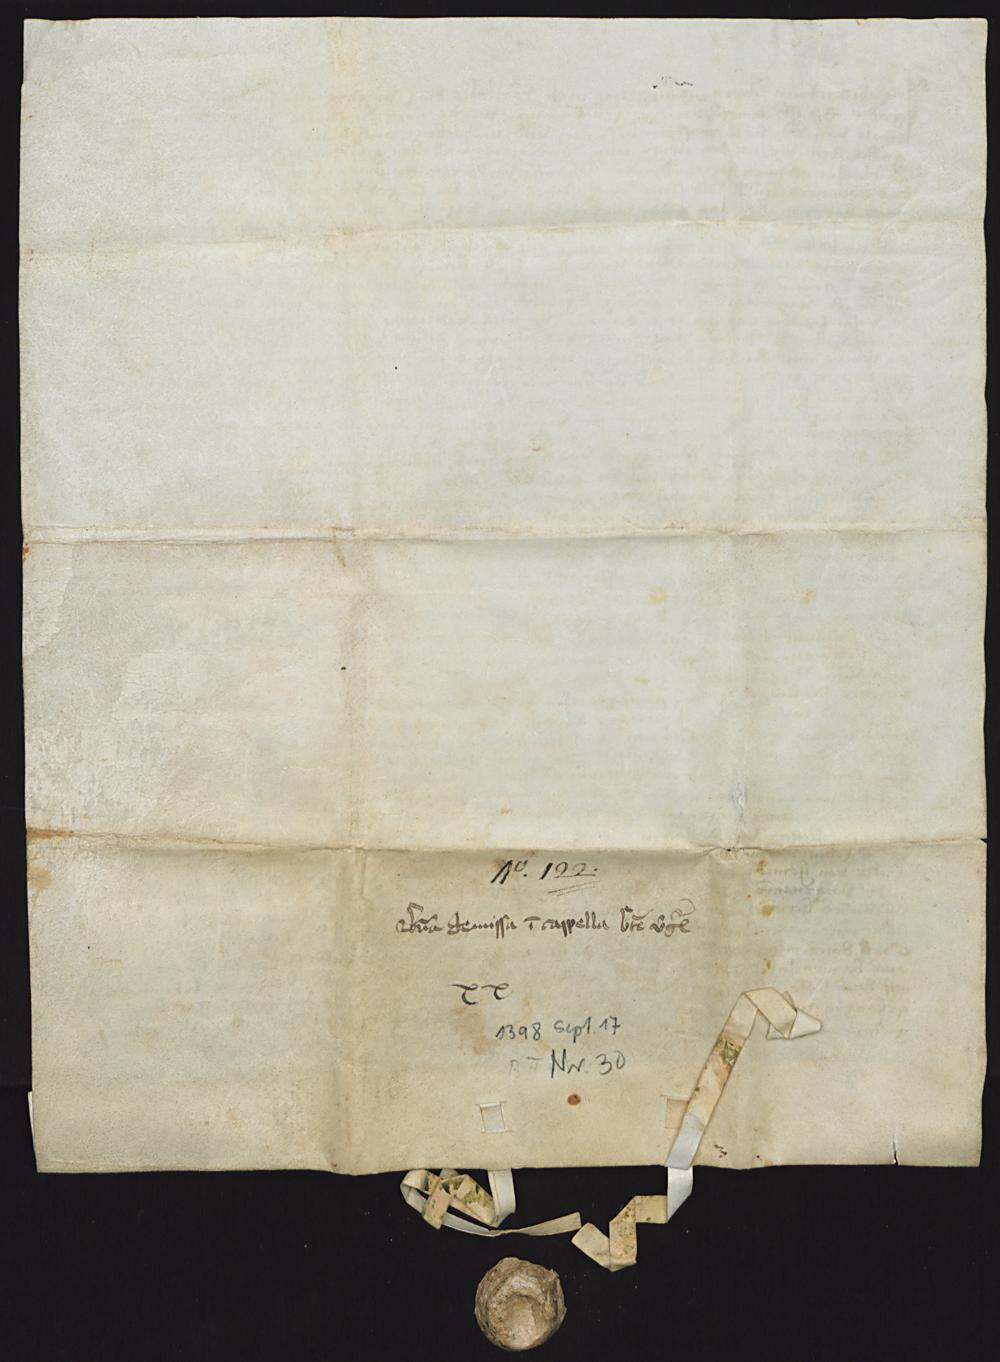 No. 122.
demissa ī capella bt̄e vg̃ē
1398 Sept. 17
B II Nr. 30